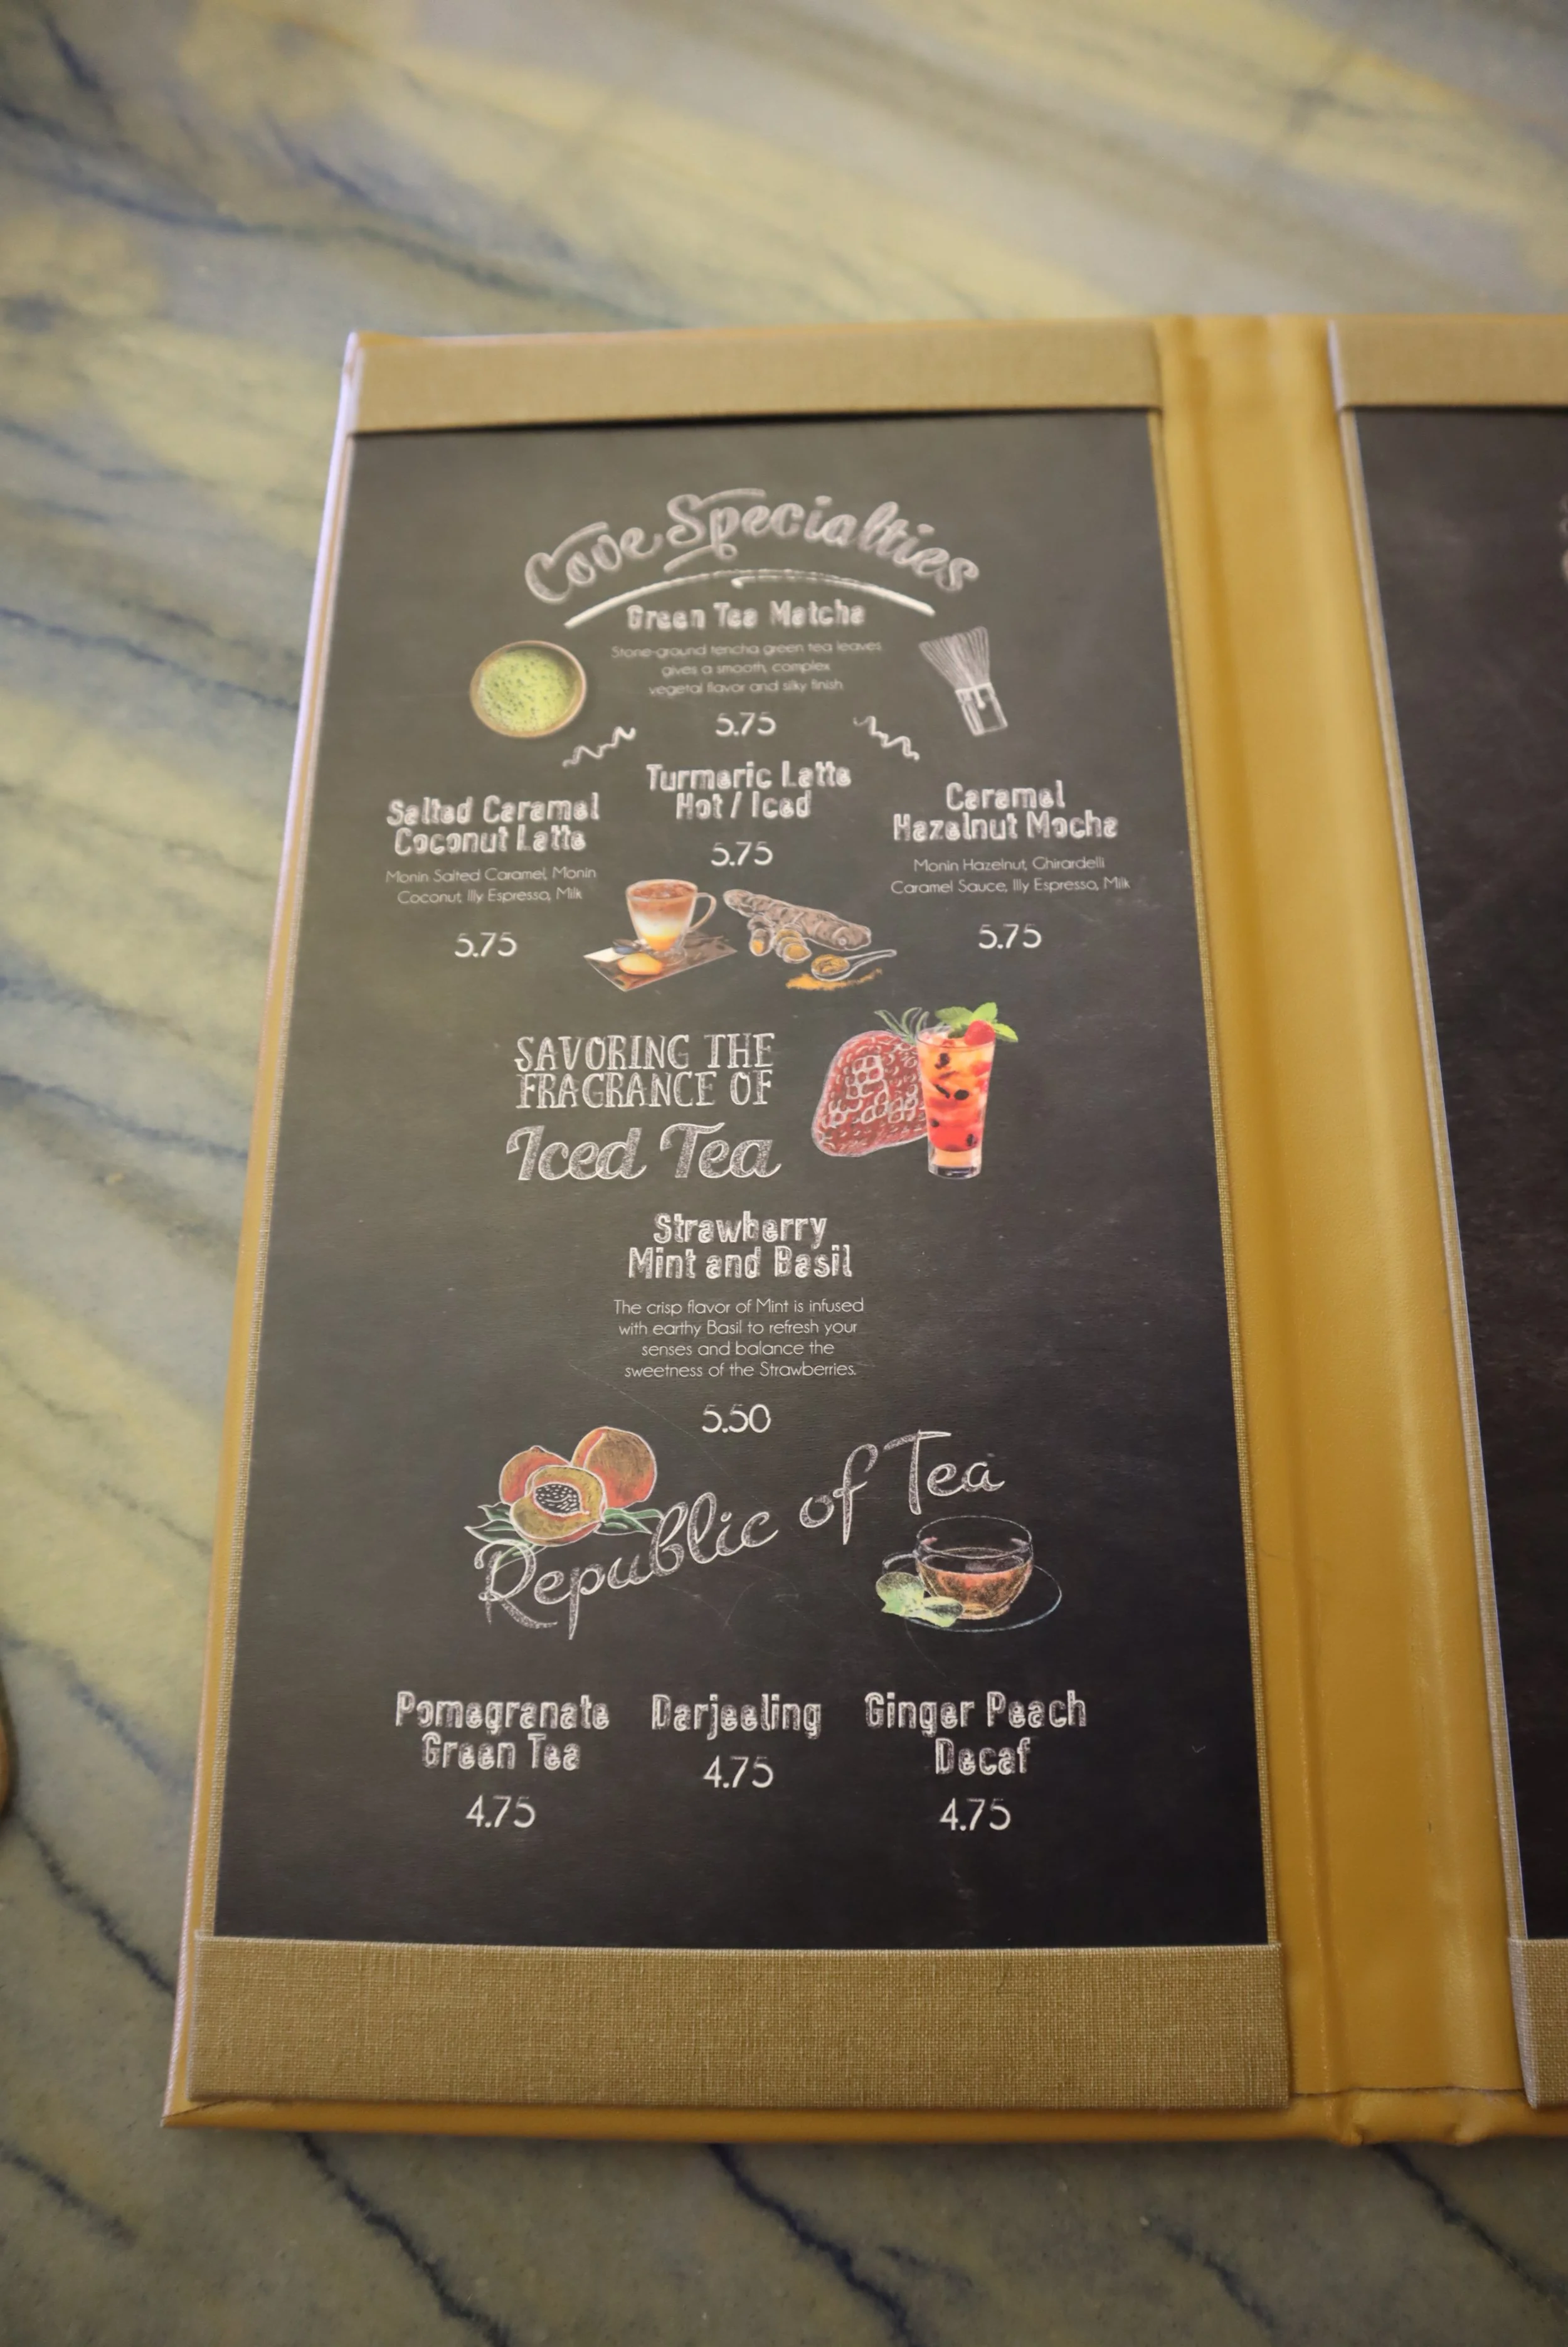 Cove Specialties
Green Tea Matcha
Stone-ground tencha green tea leaves
gives a smooth, complex
vegetal flavor and silky finish
5.75
Salted Caramel
Coconut Latte
Monin Salted Caramel, Monin
Coconut, Illy Espresso, Milk
5.75
Turmeric Latte
Hot / Iced
5.75
Caramel
Hazelnut Mocha
Monin Hazelnut, Ghirardelli
Caramel Sauce, Illy Espresso, Milk
5.75
SAVORING THE
FRAGRANCE OF
Iced Tea
Strawberry
Mint and Basil
The crisp flavor of Mint is infused
with earthy Basil to refresh your
senses and balance the
sweetness of the Strawberries.
5.50
Republic of Tea
Pomegranate
Green Tea
4.75
Darjeeling
4.75
Ginger Peach
Decaf
4.75